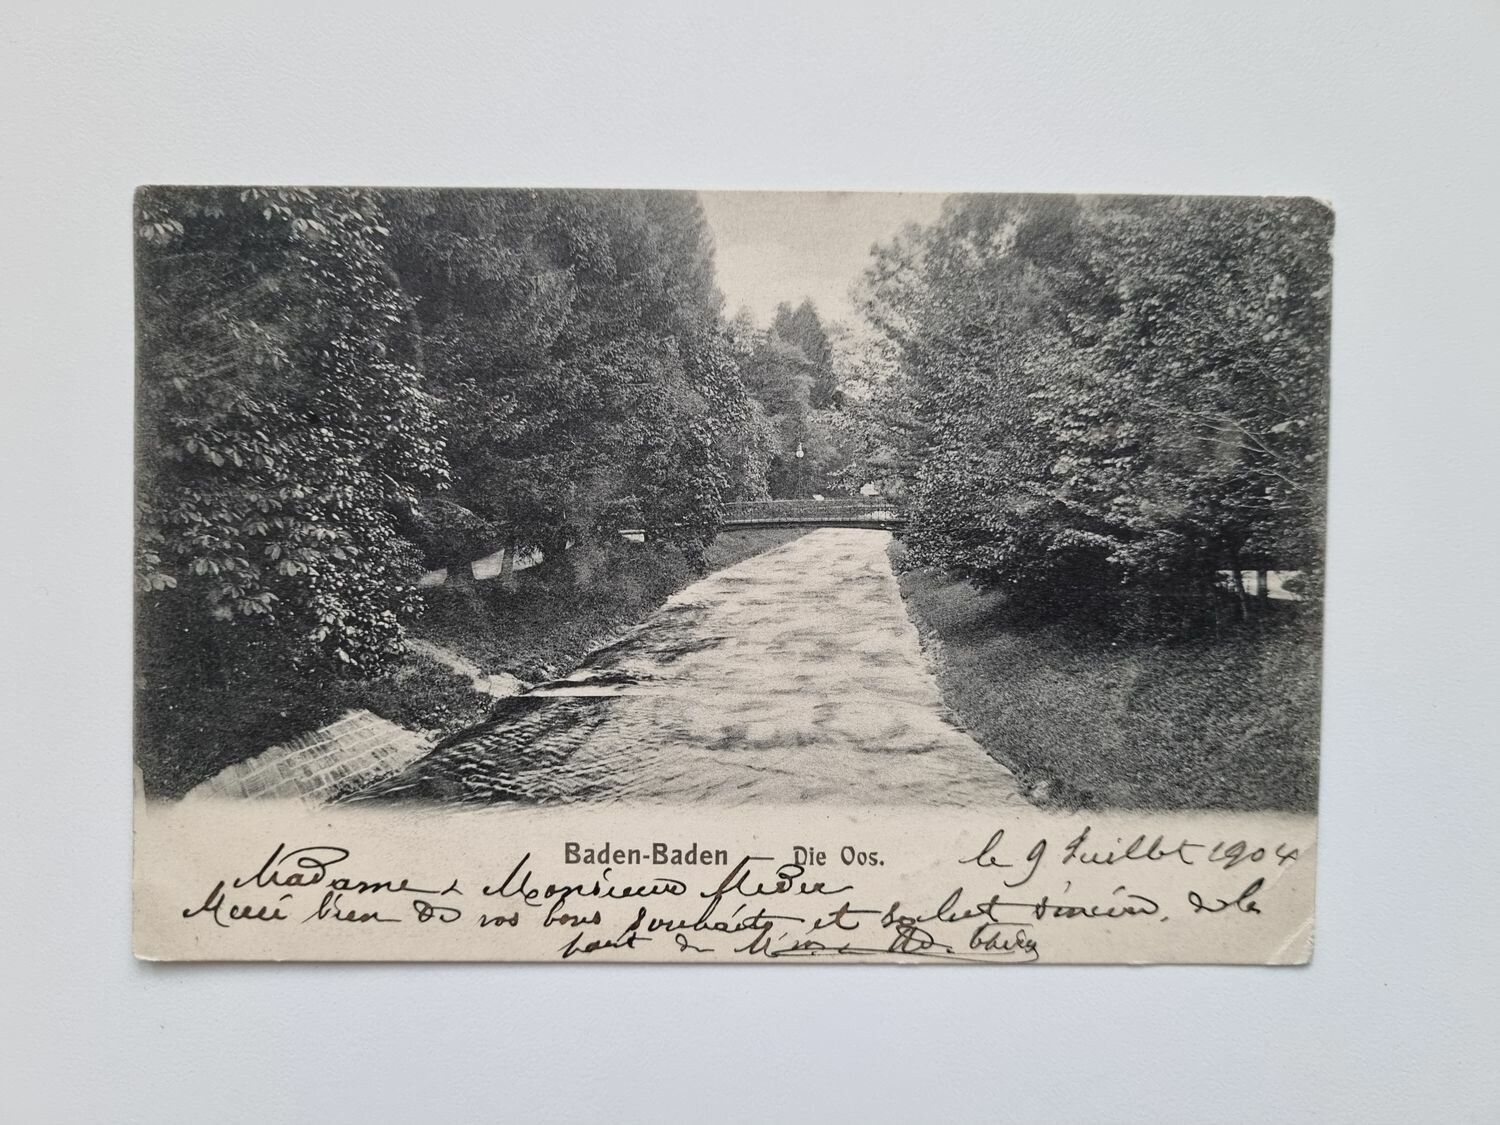 Baden-Baden — Die Oos.
le 9 Juillet 1904
Madame & Monsieur Meder
Merci bien de vos bons souhaits, et salut sincère, de la
part de